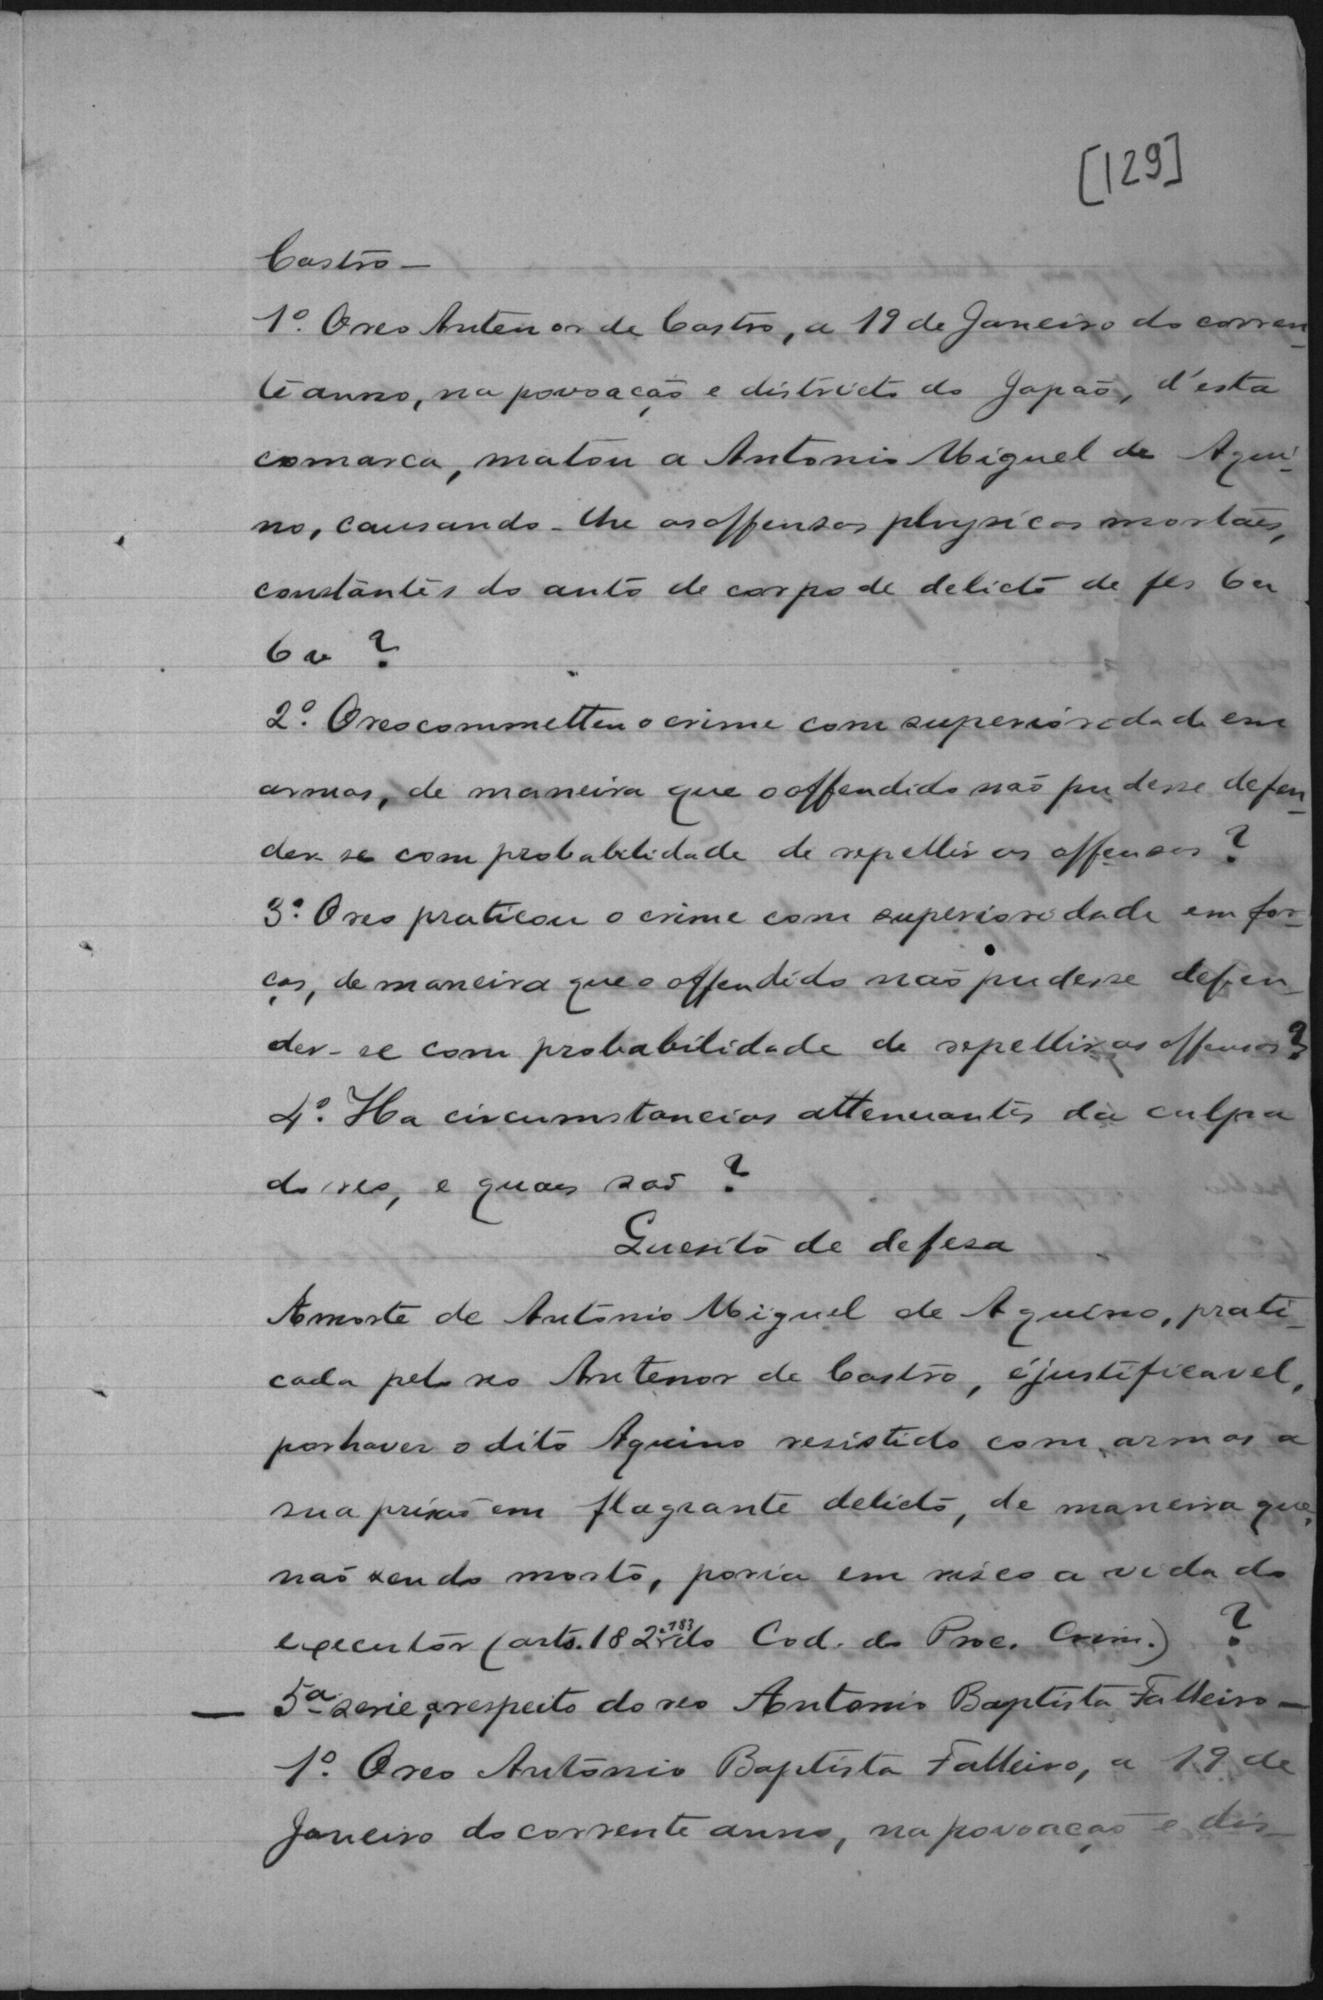 [129]
Castro –
1º. O reo Antenor de Castro, a 19 de Janeiro do corren-
te anno, na povoação e districto do Japão, d'esta
comarca, matou a Antonio Miguel de Aqui-
no, causando-lhe as offensas physicas mortaes,
constantes do auto de corpo de delicto de fls 6 a
6 v ?
2º. O reo commetteu o crime com superioridade em
armas, de maneira que o offendido não pudesse defen-
der-se com probabilidade de repellir as offensas ?
3º. O reo praticou o crime com superioridade em for-
ças, de maneira que o offendido não pudesse defen-
der-se com probabilidade de repellir as offensas ?
4º. Ha circumstancias attenuantes da culpa
do reo, e quaes são ?
Quesito de defesa
A morte de Antonio Miguel de Aquino, prati-
cada pelo reo Antenor de Castro, é justificavel,
por haver o dito Aquino resistido com armas a
sua prisão em flagrante delicto, de maneira que,
não sendo morto, poria em risco a vida do
executor (arts. 182 e 183 do Cod. do Proc. Crim.) ?
— 5ª serie, a respeito do reo Antonio Baptista Falleiro —
1º. O reo Antonio Baptista Falleiro, a 19 de
Janeiro do corrente anno, na povoação e dis-